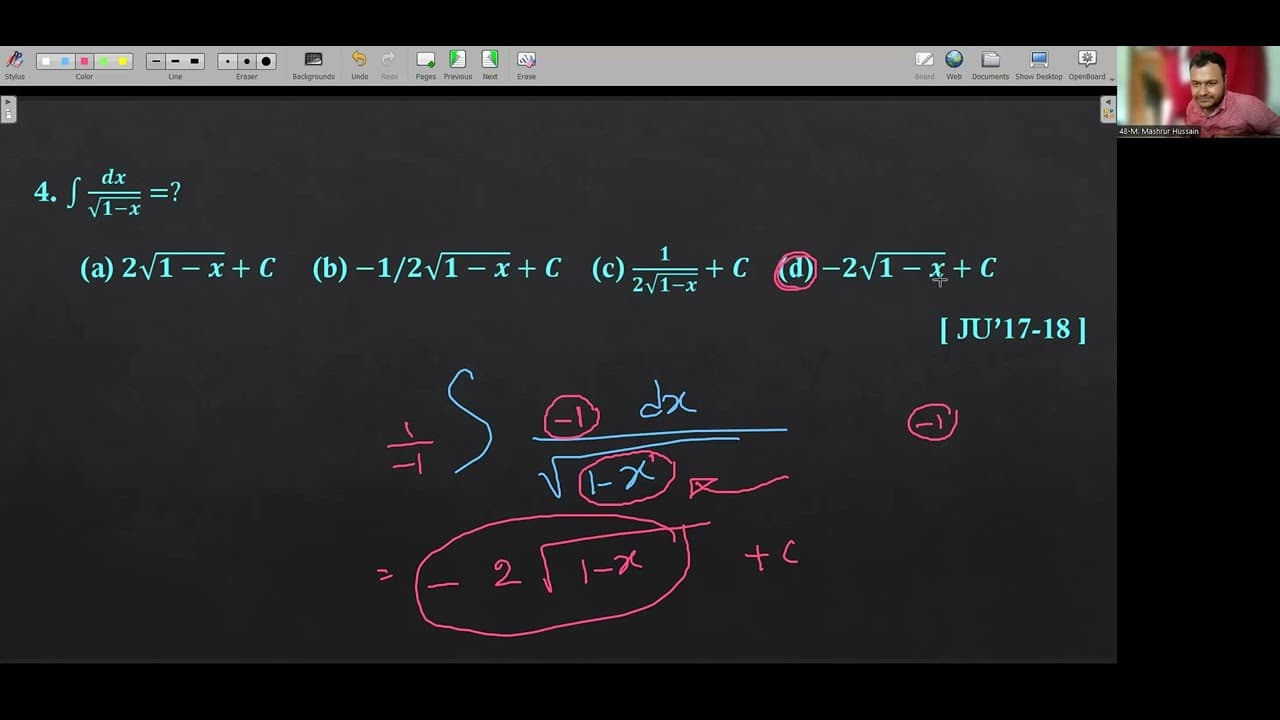 Stylus Color Line Eraser Backgrounds Undo Redo Pages Previous Next Erase Board Web Documents Show Desktop OpenBoard
48-M. Mashrur Hussain
4. ∫ dx/√(1−x) =?
(a) 2√(1 − x) + C (b) −1/2√(1 − x) + C (c) 1/(2√(1−x)) + C (d) −2√(1 − x) + C
[ JU’17-18 ]
1/−1 ∫ −1 dx/√(1−x) −1
= − 2 √(1−x) + C